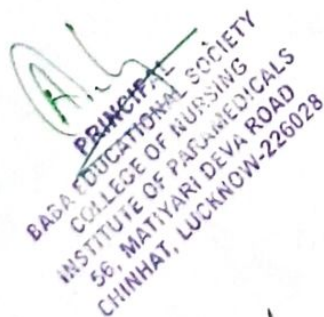 PRINCIPAL
BABA EDUCATIONAL SOCIETY
COLLEGE OF NURSING
INSTITUTE OF PARAMEDICALS
56, MATIYARI DEVA ROAD
CHINHAT, LUCKNOW-226028